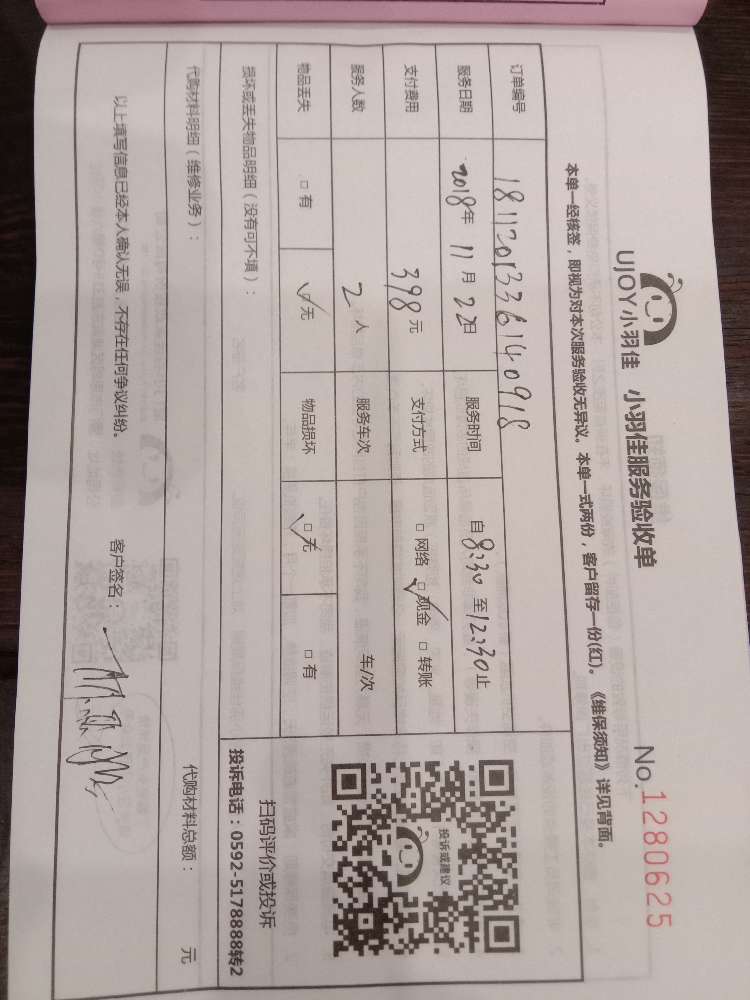 UJOY小羽佳 小羽佳服务验收单 No.1280625
本单一经核签，即视为对本次服务验收无异议。本单一式两份，客户留存一份(红)。《维保须知》详见背面。
订单编号 1811201336140918
服务日期 2018年 11月 22日 服务时间 自8:30至12:30止
支付费用 398元 支付方式 □ 网络 ☑ 现金 □ 转账
服务人数 2人 服务车次 车/次
物品丢失 □ 有 ☑ 无 物品损坏 ☑ 无 □ 有
损坏或丢失物品明细（没有可不填）：
投诉或建议
扫码评价或投诉
投诉电话：0592-5178888转2
代购材料明细（维修业务）： 代购材料总额： 元
以上填写信息已经本人确认无误，不存在任何争议纠纷。 客户签名：